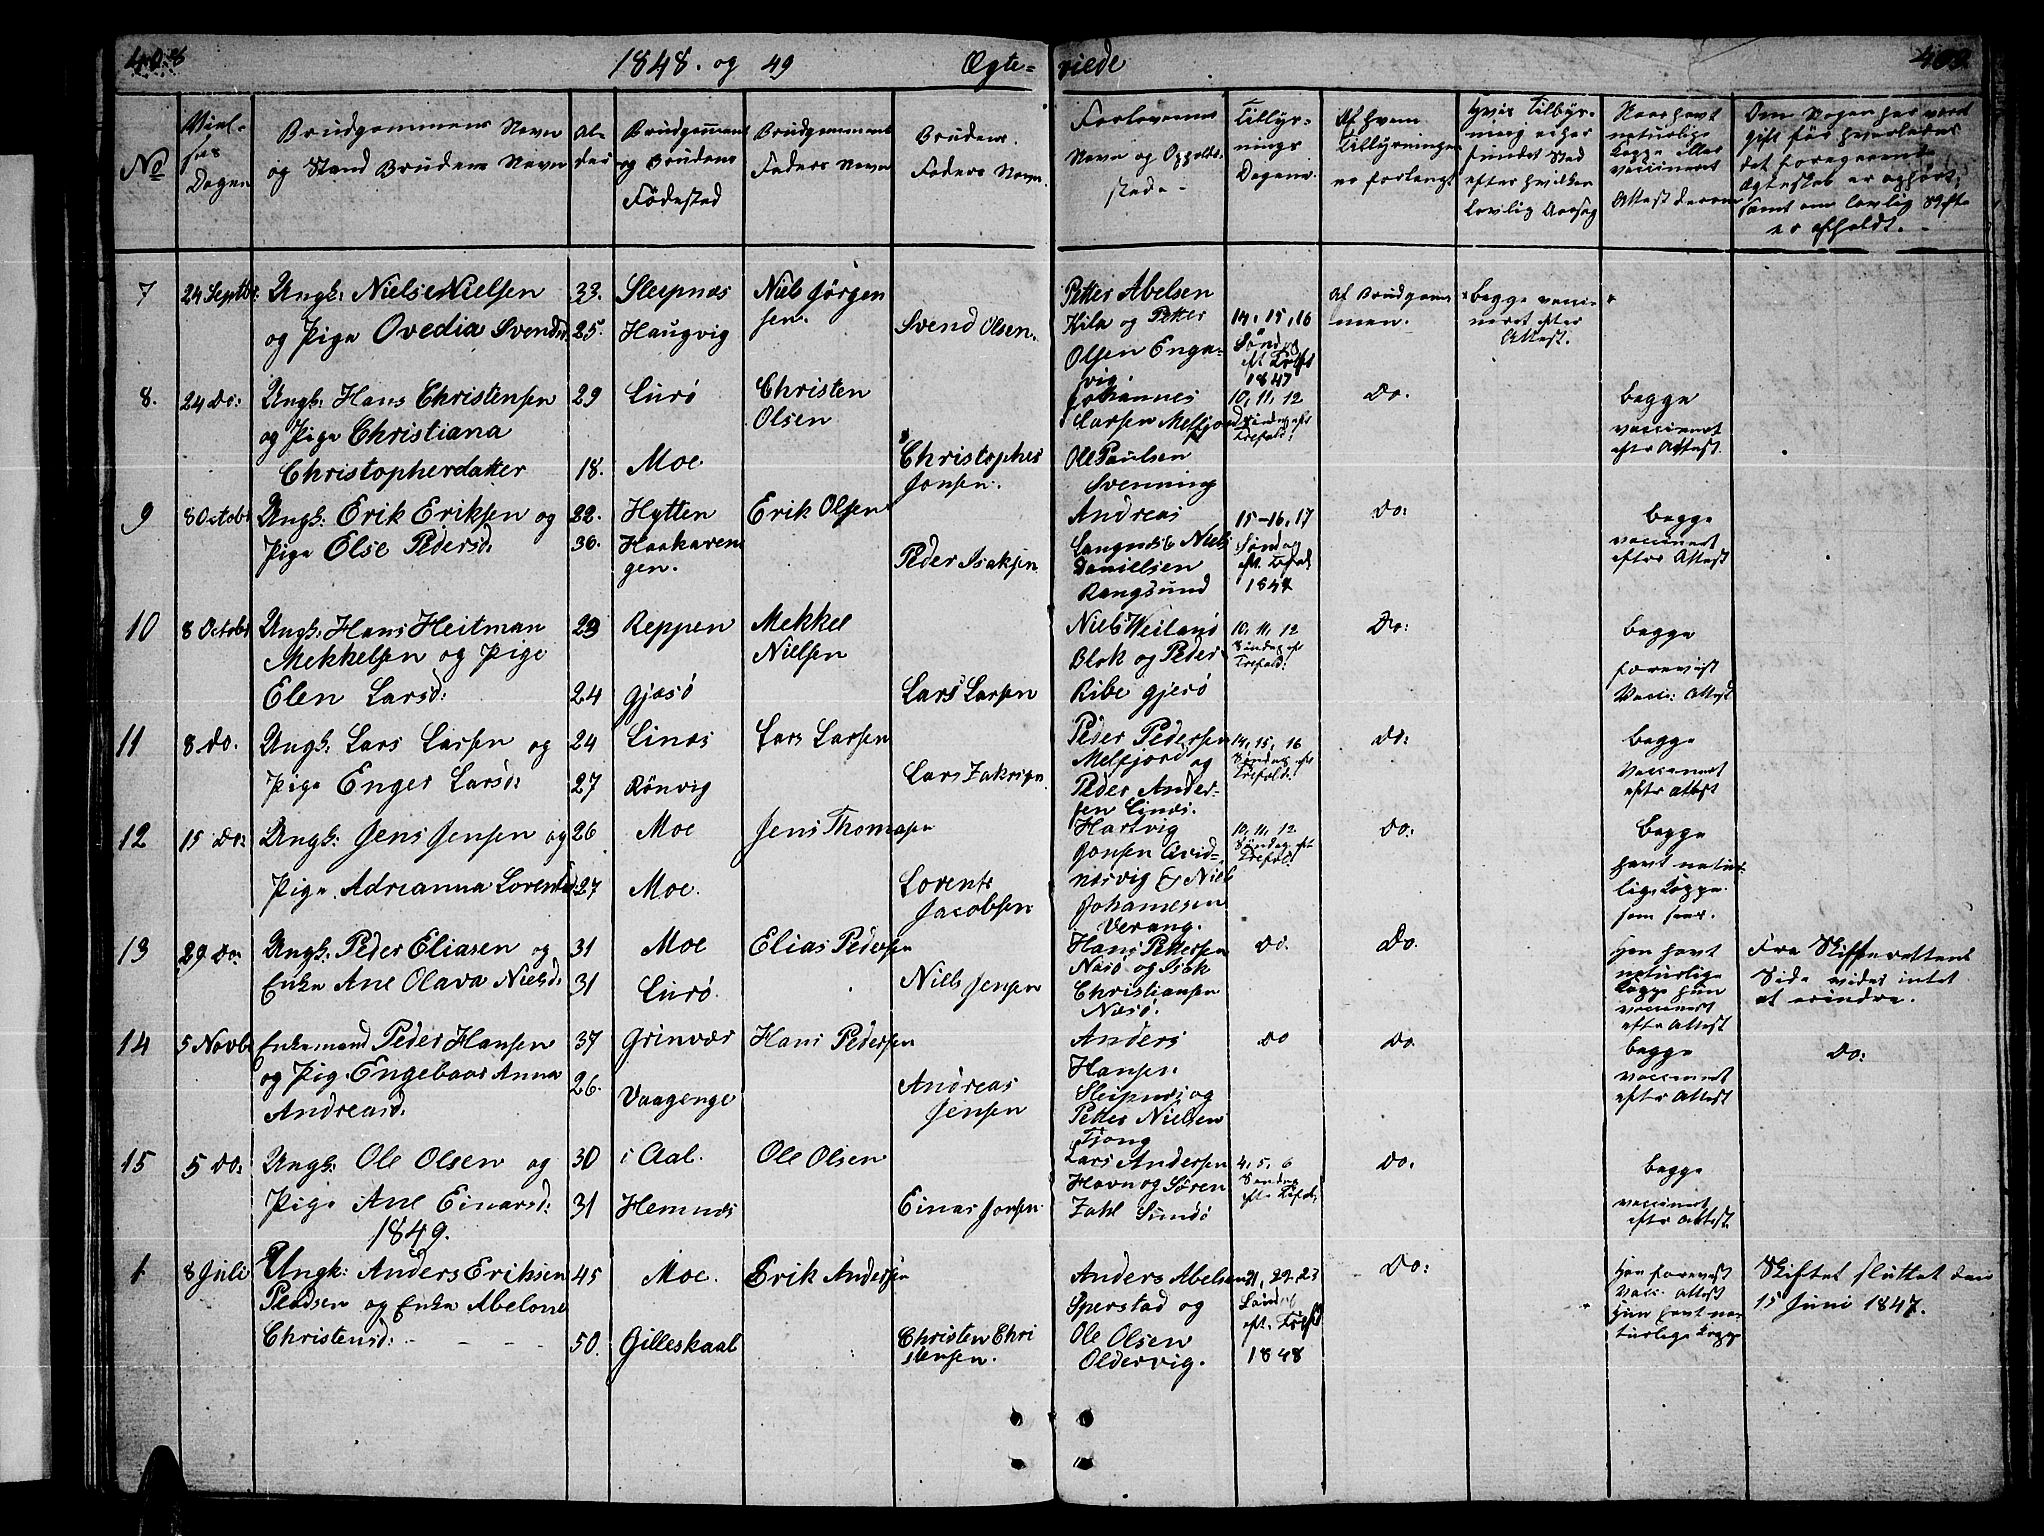 408 1848. og 49 Ægte=viede 409
No
Viel-
ses
Dagen
Brudgommens Navn
og Stand Brudens Navn
Al-
der
Brudgomens
og Brudens
Födested
Brudgommens
Faders Navn
Brudens
Faders Navn.
Forlovernes
Navn og Opholds
sted
Tillys-
nings
Dagene.
Af hvem
Tillysningen
er forlangt
Hvis Tilbys-
ning ei har
fundet Sted
efter hvilken
Lovlig Aarsag
Naar havt
naturlige
Kopper eller
vaccineret
Attest derom
Om Nogen har været
gift før hvorledes
det foregaaende
Ægteskab er ophørt;
samt om lovlig Skifte
er afholdt.
7
24 Septbr:
Ungk: Niels Nielsen
og Pige Ovedia Svendsd
33.
25.
Sleipnæs
Haugvig
Niels Jörgen
sen.
Svend Olsen.
Petter Abelsen
Kila og Petter
Olsen Enga-
vig.
14, 15, 16
Søndag
eft. Trefold
1847
Af Brudgom
men.
Begge vacci-
neret efter
Attest.
8.
24 Do:
Ungk: Hans Christensen
og Pige Christiana
Christopherdatter
29
18.
Lurö
Moe
Christen
Olsen
Christopher
Jonsen.
Johannes
Larsen Melfjord
Ole Paulsen
Svenning
10, 11, 12
Søndag eft
Trefold:
Do.
begge
vaccineret
efter Attest.
9
8 Octobr
Ungk: Erik Eriksen og
Pige Else Pedersd:
22.
30.
Hytten
Haakaren
gen.
Erik Olsen
Peder Isaksen
Andreas
Langnæs Niels
Danielsen
Rangsund
15-16, 17
Søndag
eft. Trefold
1847
Do:
begge
vaccineret
efter Attest
10
8 Octobr
Ungk: Hans Heitman
Mekkelsen og Pige
Elen Larsd:
23
24
Reppen
Gjæsö
Mekkel
Nielsen
Lars Larsen
Niels Weilans
Blok og Peder
Ribe gjerö
10, 11, 12
Søndag eft
Trefold:
Do:
begge
forevist
Vacc: Attest
11
8 Do.
Ungk: Lars Larsen og
Pige Enger Larsd:
24
27
Linæs
Rönvig
Lars Larsen
Lars Zakrisen
Peder Pedersen
Melfjord og
Peder Ander-
sen Linæs.
14, 15, 16
Søndag eft
Trefold:
Do:
begge
Vaccineret
efter Attest
12
15 Do:
Ungk: Jens Jensen og
Pige Adreanna Lorentsd
26
27
Moe
Moe.
Jens Thomasen
Lorents
Jacobsen
Hartvig
Jonsen Qvid-
næsvig & Niels
Johannesen
Verang.
10, 11, 12
Søndag eft
Trefold
Do:
Begge
havt natur-
lige Kopper
som saar.
13
29 Do:
Ungk: Peder Eliasen og
Enke Ane Olava Nielsd:
31
31
Moe
Lurö.
Elias Pedersen
Niels Jensen
Hans Pettersen
Næsö og Isak
Christiansen
Næsö.
Do.
Do.
Han havt
naturlige
Kopper hun
vaccineret
efter Attest
Fra Skifterettens
Side vides intet
at erindre.
14
5 Novbr
Enkemand Peder Hansen
og Pig. Engebaar Anna
Andreasd:
37
26.
Grinvær
Vaagenge
Hans Pedersen
Andreas
Jensen
Anders
Hansen
Sleipnæs og
Petter Nielsen
Tjong
Do
Do
begge
vaccineret
efter Attest
Do:
15
5 Do:
Ungk: Ole Olsen og
Pige Ane Einarsd:
30
31
i Aal.
Hemnæs
Ole Olsen
Einar Jonsen
Lars Andersen
Havn og Sören
Zahl Sundö
4, 5, 6
Søndag
eft. Trefold
Do.
begge
vaccineret
efter Attest
1849.
1
8 Juli
Ungk: Anders Eriksen
og Enke Abelone
Christensd:
45
50.
Moe.
Gilleskaal
Erik Andersen
Christen Chri
stensen.
Anders Abelsen
Sperstad og
Ole Olsen
Oldervig.
21, 22, 23
Søndag
eft. Trefold
1848
Do:
Han forevist
Vacc. Attest
Hun havt na-
turlige Kopper
Skiftet sluttet den
15 Juni 1847.